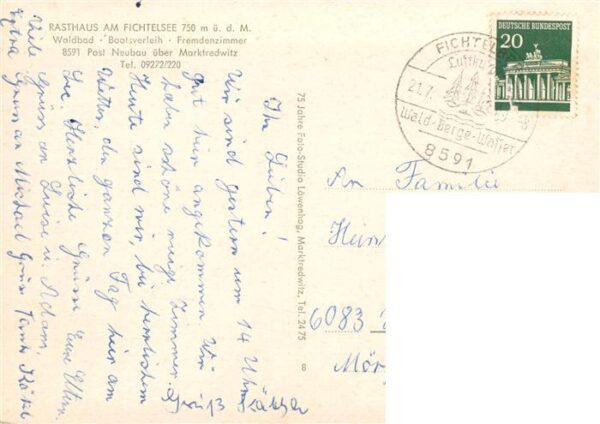 RASTHAUS AM FICHTELSEE 750 m ü. d. M.
Waldbad · Bootsverleih · Fremdenzimmer
8591 Post Neubau über Marktredwitz
Tel. 09272/220
Ihr Lieben!
Wir sind gestern um 14 Uhr
gut hier angekommen. Wir
haben schöne Zimmer.
Heute sind wir, bei herrlichem
Wetter, den ganzen Tag hier am
See. Herzliche Grüsse Eure Eltern
Viele Grüss an Luise u. Adam.
Extra Gruss an Michael Gruss Tante
75 Jahre Foto-Studio Löwenhag, Marktredwitz, Tel. 2475
8
DEUTSCHE BUNDESPOST
20
FICHTEL
Luftku
21.7.
Wald-Berge-Wasser
8591
An Familie
Hein
6083
Mör